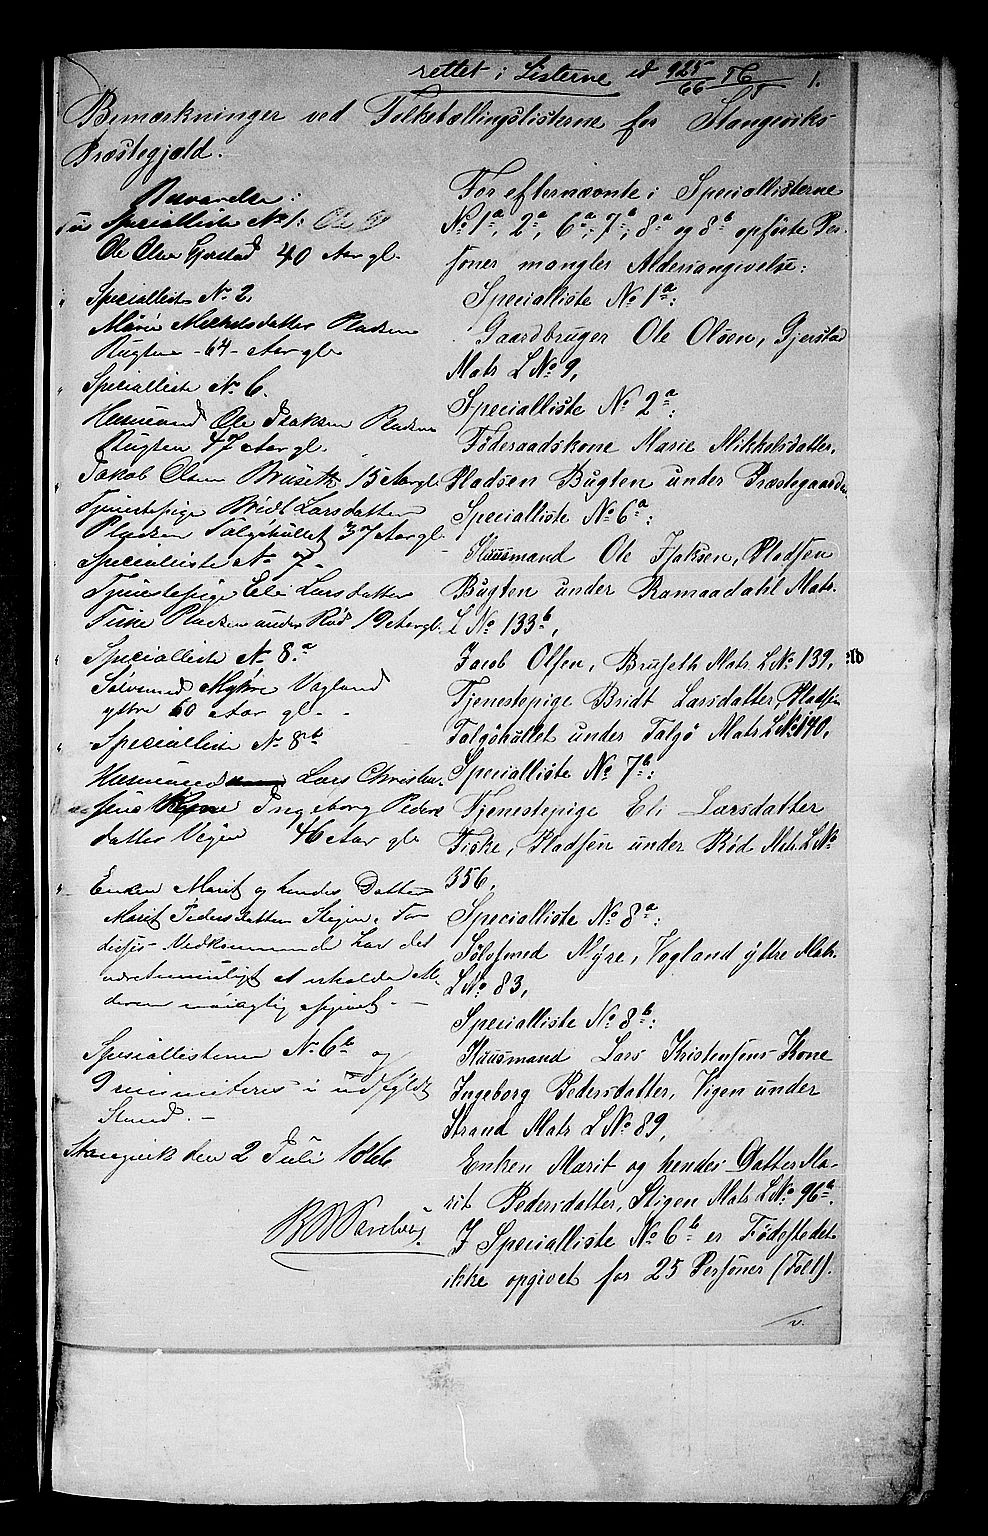 rettet i Listerne 925/66 1.
Bemærkninger ved Folketællingslisterne for Stangeviks
Præstegjæld.
Besvarelse:
Specialliste No 1:
Ole Olsen Gjerstad 40 Aar gl.
Speciallist No 2.
Marie Mickelsdatter Pladsen
Bugten - 64 - Aar gl.
Specialliste No 6.
Husmand Ole Isaksen Pladsen
Bugten 47 Aar gl.
Jakob Olsen Brusetk 15 Aar gl.
Tjenestepige Bridt Larsdatter
Pladsen Talgöhullet 37 Aar gl.
Specialliste No 7.
Tjenestepige Eli Larsdatter
Fiske Pladsen under Röd 19 Aar gl.
Specialliste No 8.a
Sölvsmed Myhre Vagland
yttre 60 Aar gl.
Specialliste No 8b
Husmand Lars Christen-
sens Kone Ingeborg Peders
datter Vigen 46 Aar gl.
Enken Marit og hendes Datter
Marit Pedersdatter Stigen. For
disses Vedkommende har det
været umuligt at erholde Al-
deren nöiagtig opgivet. -
Speciallisterne No 6b og
9 remitteres i udfyldt
Stand. -
Stangvik den 2 Juli 1866
For efternævnte i Speciallisterne
No 1a, 2a, 6a, 7b, 8a og 8b opförte Per-
soner mangler Aldersangivelse:
Specialliste No 1a:
Gaardbruger Ole Olsen, Gjerstad
Matr L No 9,
Specialliste No 2a:
Föderaadskone Marie Mikkelsdatter,
Pladsen Bugten under Præstegaarden
Specialliste No 6a:
Huusmand Ole Isaksen, Pladsen
Bugten under Ramaadahl Matr.
L No 133b,
Jacob Olsen, Bruseth Matr L No 139,
Tjenestepige Bridt Larsdatter, Pladsen
Talgöhullet under Talgö Matr L No 140,
Specialliste No 7b:
Tjenestepige Eli Larsdatter
Fiske, Pladsen under Röd Matr L No
356,
Specialliste No 8a:
Sölvsmed Myre, Vogland yttre Matr.
L No 83,
Specialliste No 8b:
Huusmand Lars Kristensens Kone
Ingeborg Pedersdatter, Vigen under
Strand Matr L No 89,
Enken Marit og hendes Datter Ma-
rit Pedersdatter, Stigen Matr L No 96a.
I Specialliste No 6b er Födestedet
ikke opgivet for 25 Personer (Tolt).
v.
eld